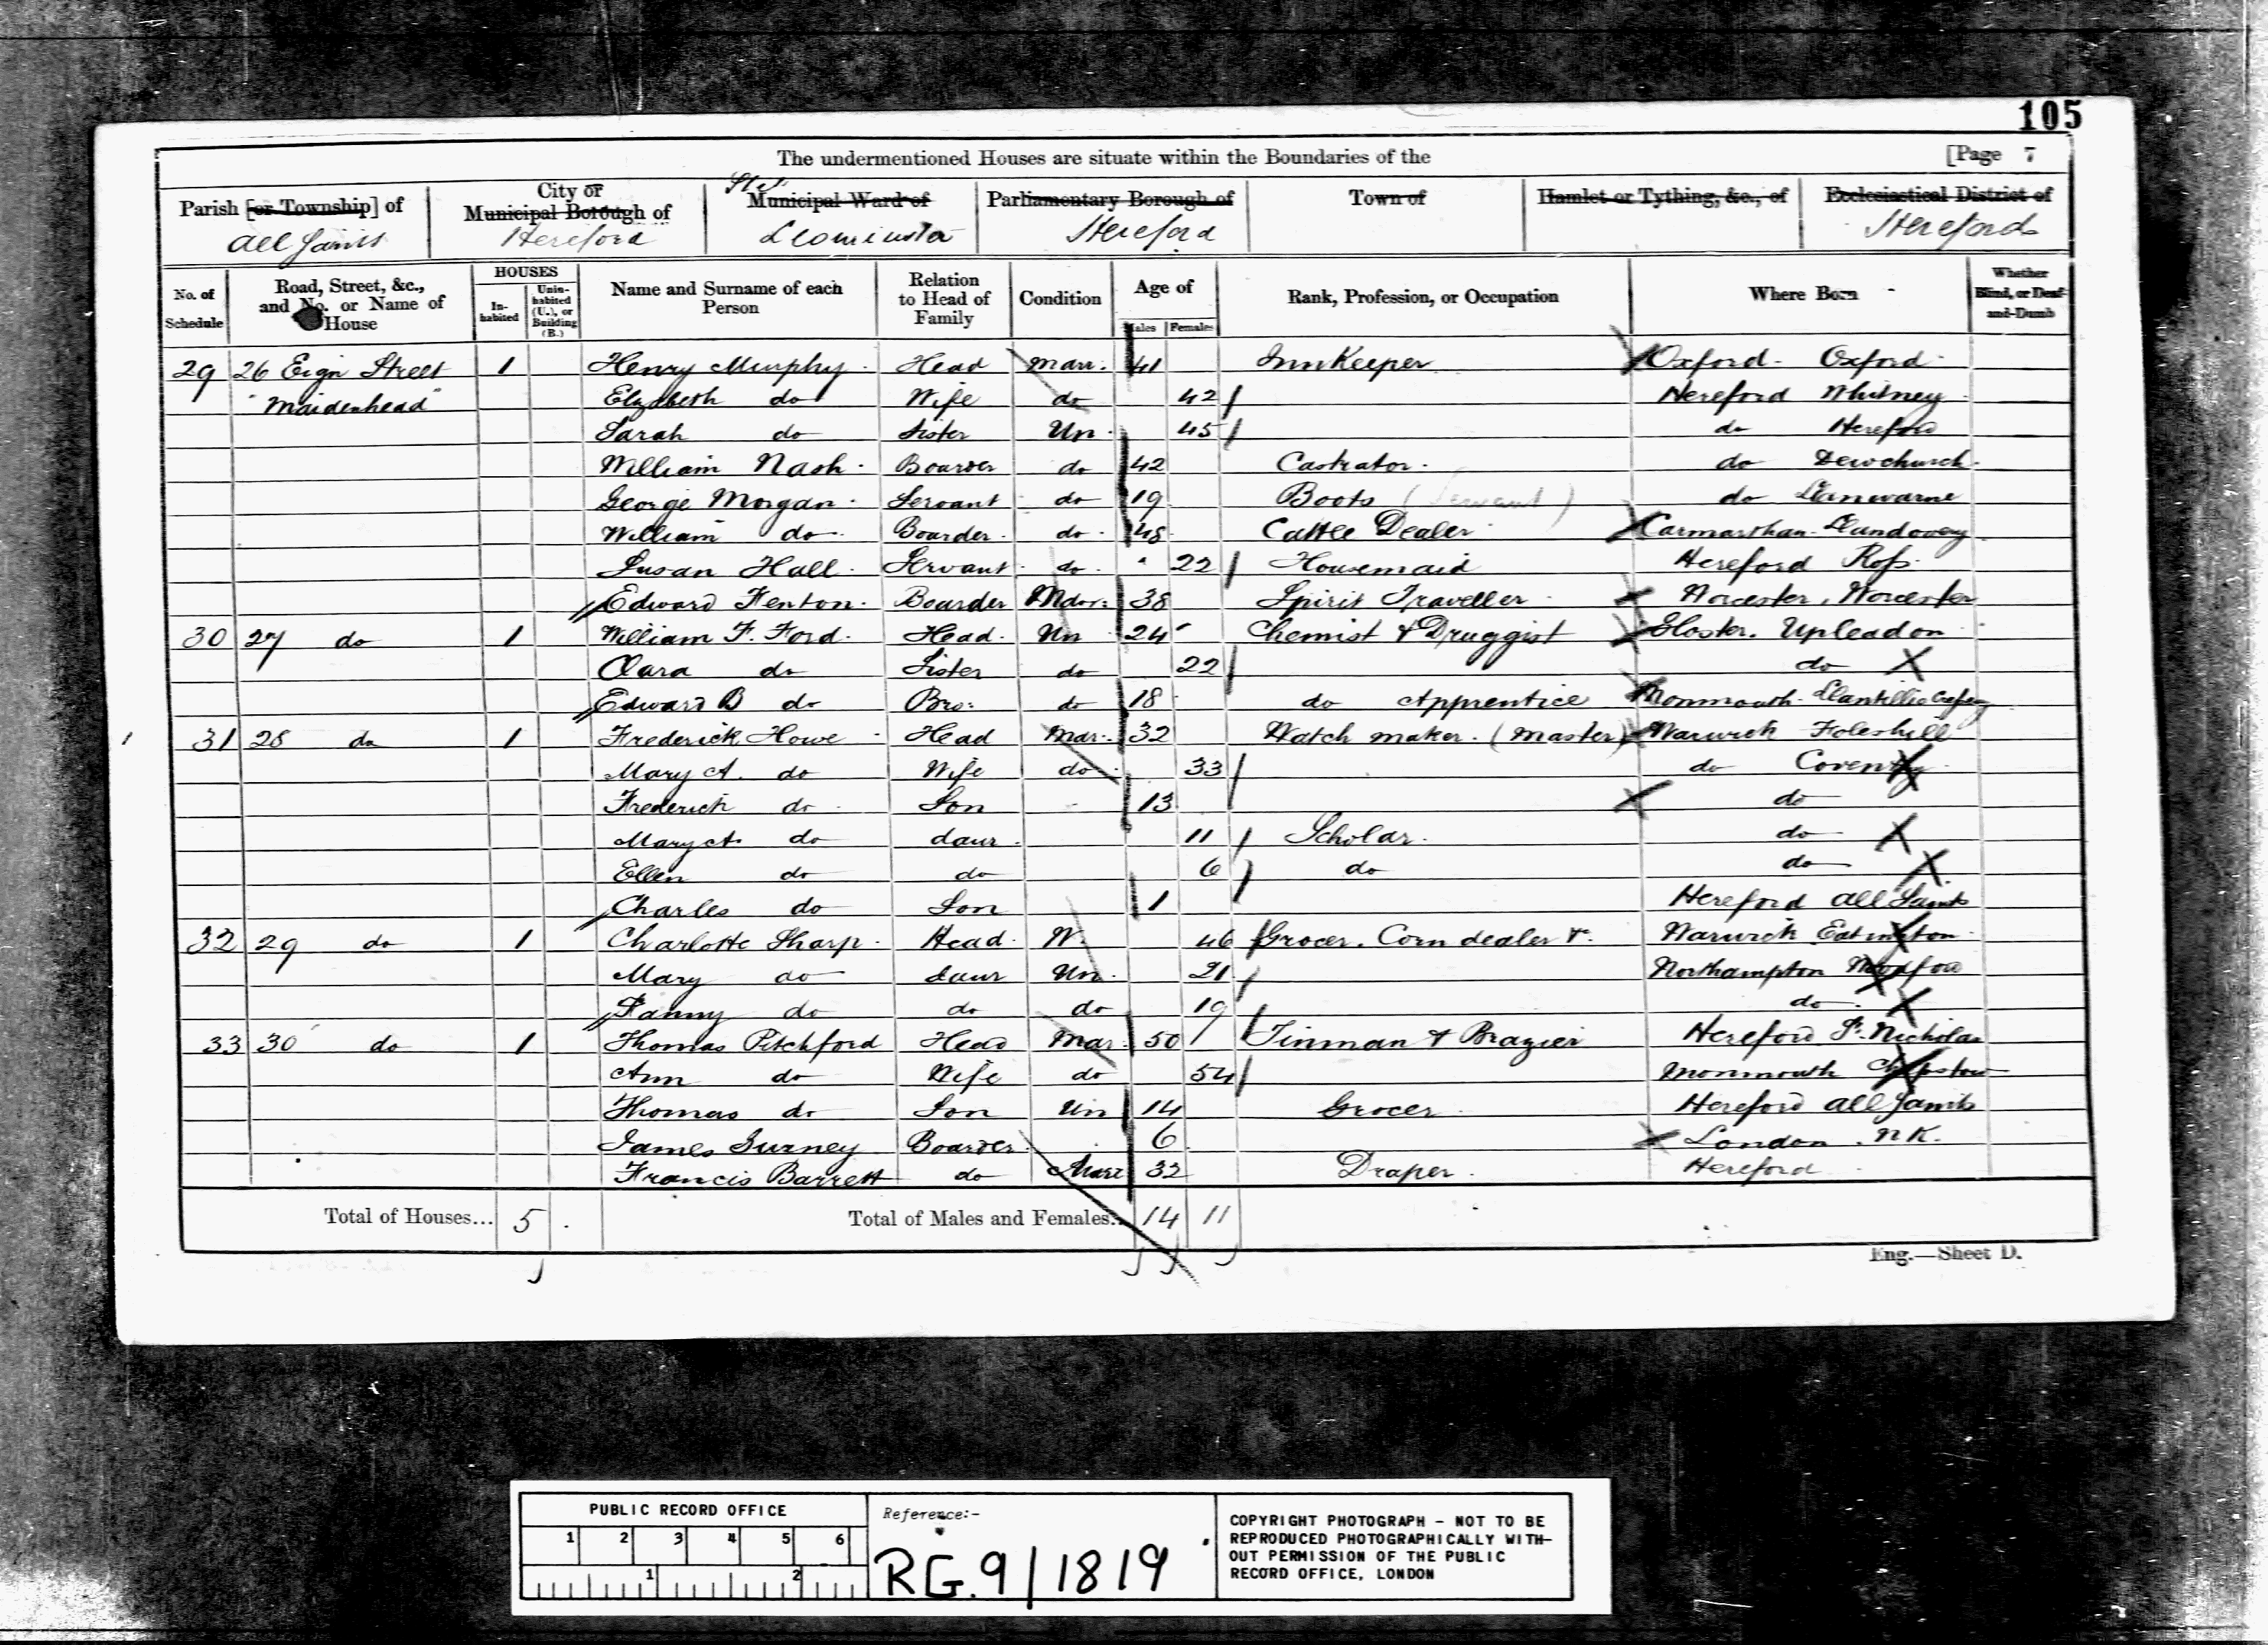 105
The undermentioned Houses are situate within the Boundaries of the [Page 7
Parish [or Township] of All Saints
City or Municipal Borough of Hereford
Municipal Ward of Leominster
Parliamentary Borough of Hereford
Town of
Hamlet or Tything, &c., of
Ecclesiastical District of Hereford
No. of Schedule
Road, Street, &c., and No. or Name of House
HOUSES
In-habited
Unin-habited (U.), or Building (B.)
Name and Surname of each Person
Relation to Head of Family
Condition
Age of
Males Females
Rank, Profession, or Occupation
Where Born
Whether Blind, or Deaf-and-Dumb
29 26 Eign Street 1 Henry Murphy Head Marr. 41 InnKeeper Oxford - Oxford
"Maidenhead" Elizabeth do Wife do 42 Hereford Whitney
Sarah do Sister Un 45 do Hereford
William Nash Boarder do 42 Castrator do Dewchurch
George Morgan Servant do 19 Boots (Servant) do Llanwarne
William do Boarder do 48 Cattle Dealer Carmarthan Llandovery
Susan Hall Servant do 22 Housemaid Hereford Ross
Edward Fenton Boarder 38 Spirit Traveller Worcester, Worcester
30 27 do 1 William F. Ford Head Un 24 Chemist & Druggist Gloster. Upleadon
Clara do Sister do 22 do
Edward B do Bro: do 18 do Apprentice Monmouth
31 28 do 1 Frederick Howe Head Mar. 32 Watch maker (master) Warwick Foleshill
Mary A. do Wife do 33 do Coventry
Frederick do Son 13 do
Mary A do daur 11 Scholar do
Ellen do do 6 do do
Charles do Son 1 Hereford All Saints
32 29 do 1 Charlotte Sharp Head W. 46 Grocer, Corn dealer &. Warwick Eatington
Mary do daur Un 21 Northampton
Fanny do do do 19 do
33 30 do 1 Thomas Pitchford Head Mar. 50 Tinman & Brazier Hereford St. Nicholas
Ann do Wife do 54 Monmouth Chepstow
Thomas do Son Un 14 Grocer Hereford All Saints
James Gurney Boarder 6 London N.K.
Francis Barrett do Marr 32 Draper Hereford
Total of Houses... 5
Total of Males and Females... 14 11
Eng.—Sheet D.
PUBLIC RECORD OFFICE
1 2 3 4 5 6
1 2
Reference:-
RG.9/1819
COPYRIGHT PHOTOGRAPH - NOT TO BE
REPRODUCED PHOTOGRAPHICALLY WITH-
OUT PERMISSION OF THE PUBLIC
RECORD OFFICE, LONDON